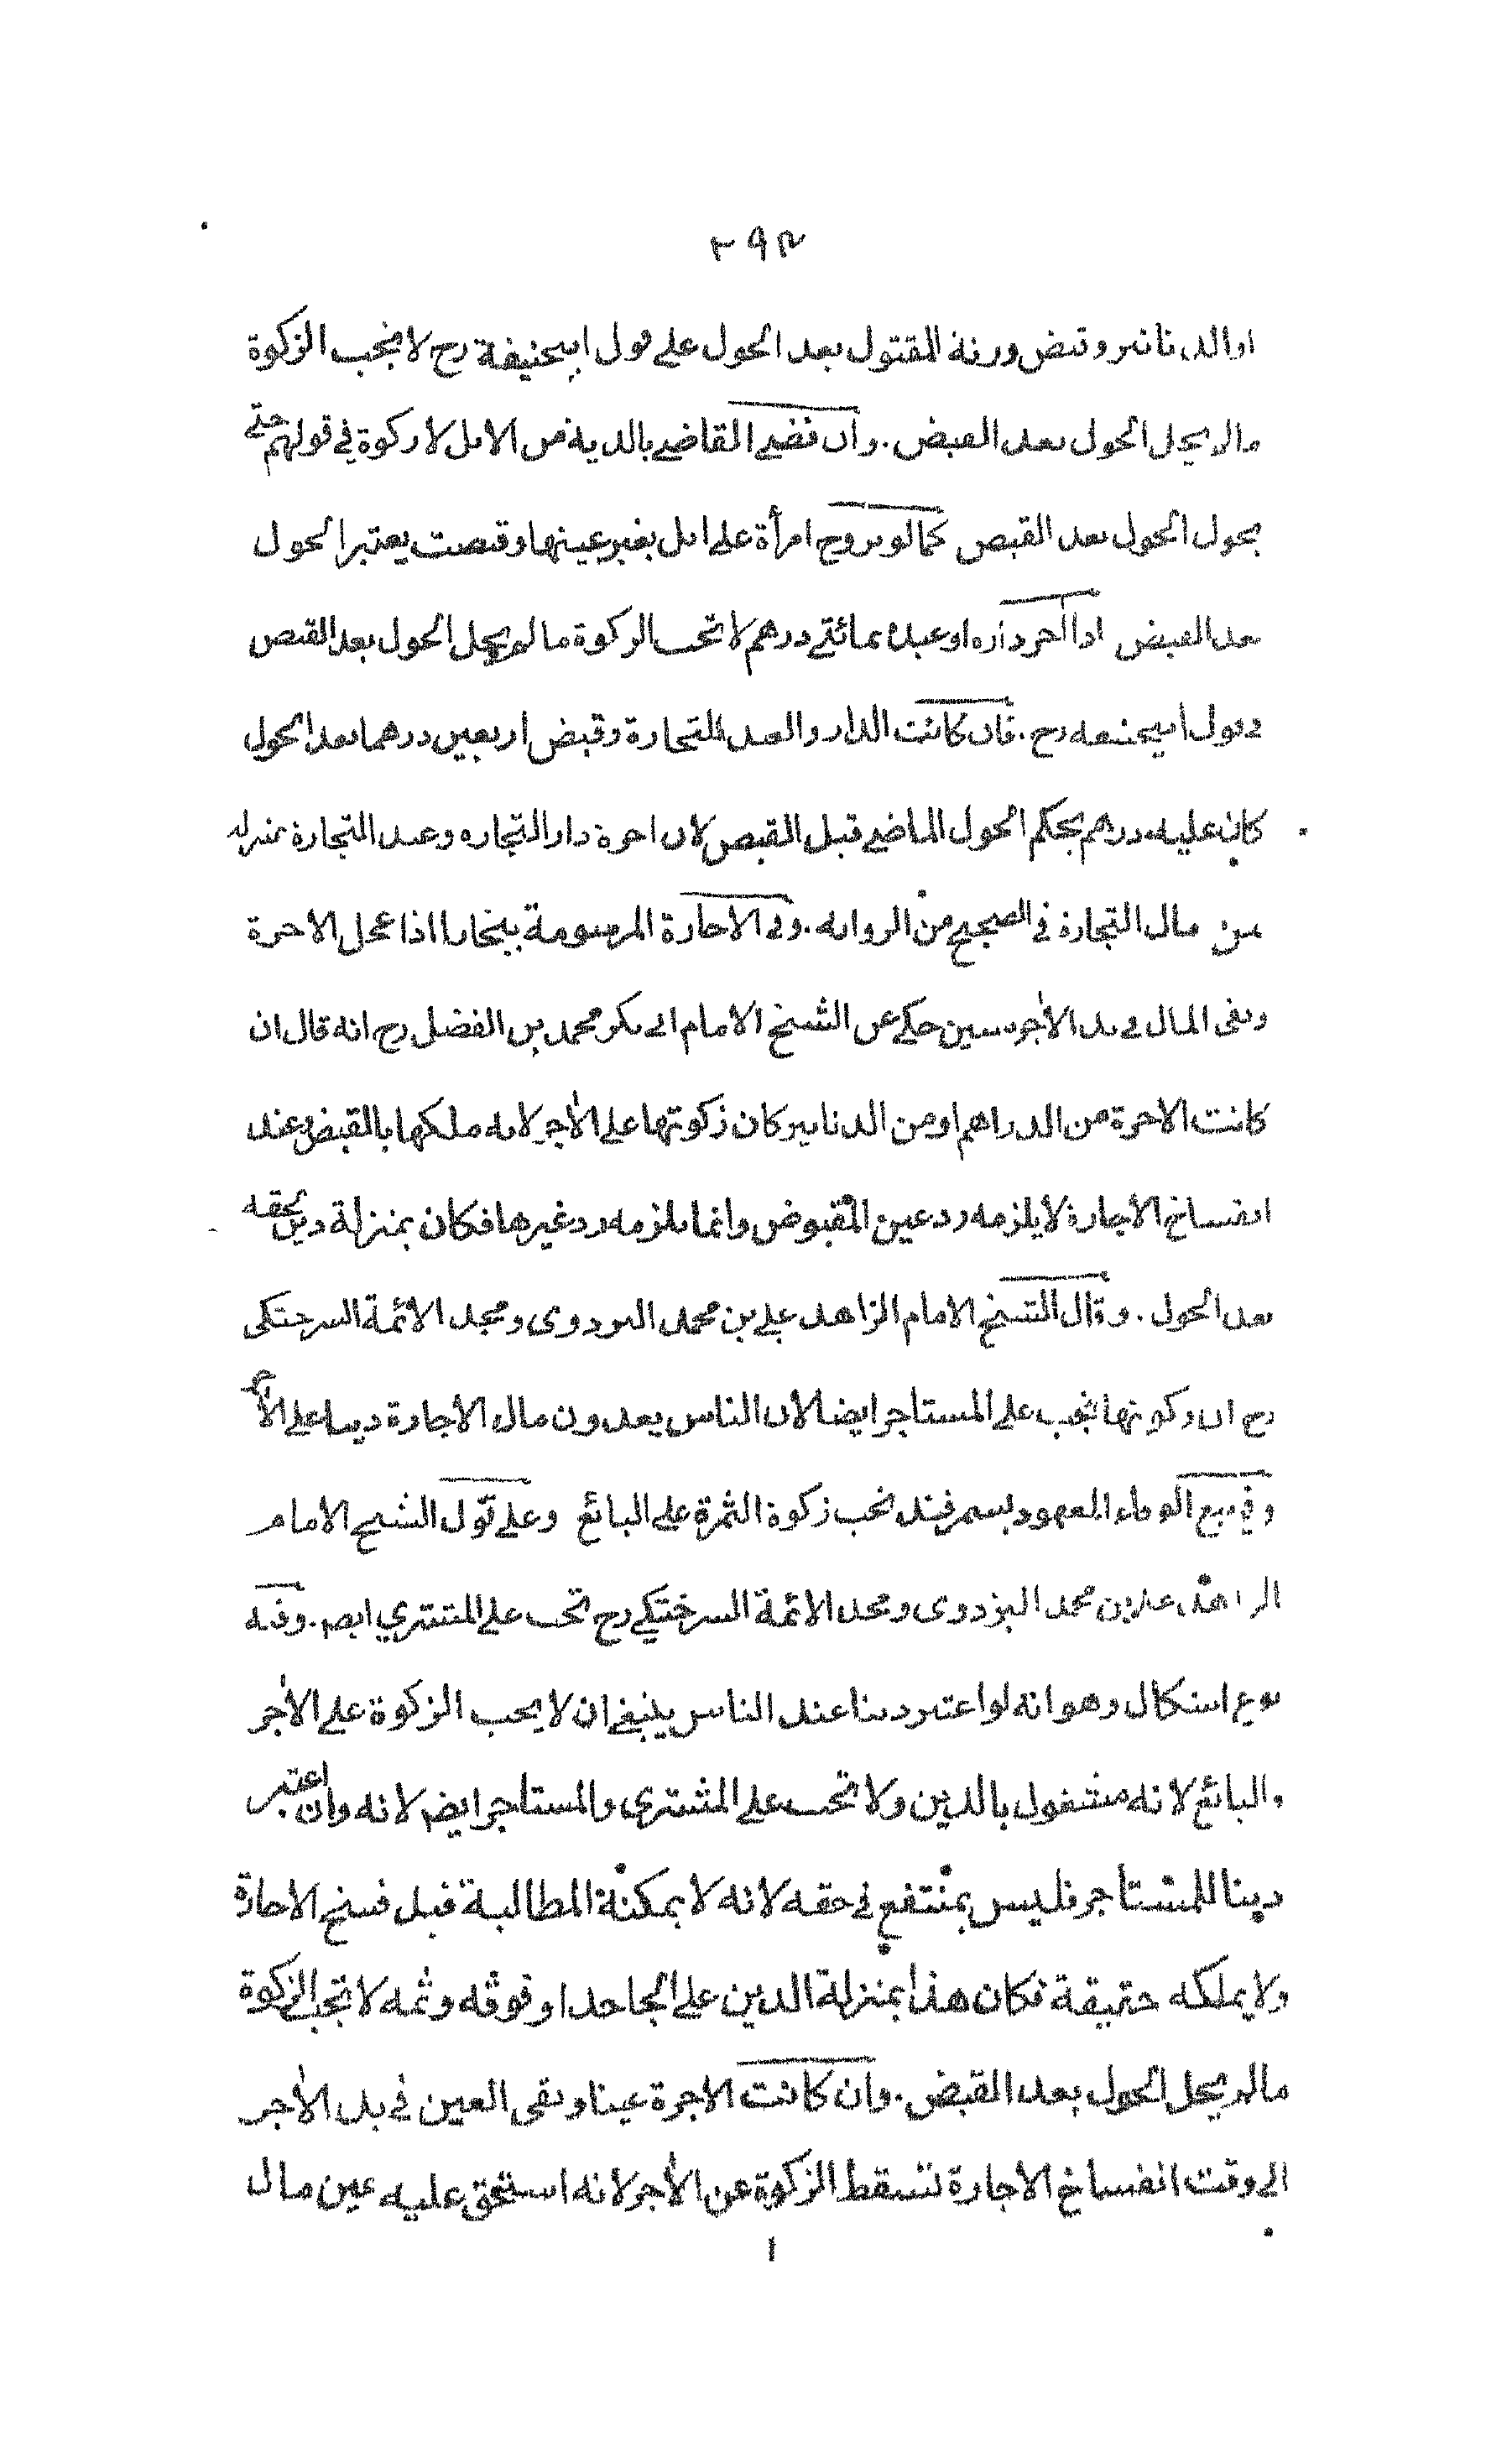 ٢٩٢
او الدنانير وقبض ورثة المقتول بعد الحول على قول ابيحنيفة رح لا تجب الزكوة
مالم يحل الحول بعد القبض . وان قضى القاضي بالدية من الابل لا زكوة في قولهم حتى
يحول الحول بعد القبض كما لو تزوج امرأة على ابل بغير عينها وقبضت يعتبر الحول
بعد القبض اذا آجر داره او عبده بمائتي درهم لا تجب الزكوة ما لم يحل الحول بعد القبض
في قول ابيحنيفه رح . فان كانت الدار والعبد للتجارة وقبض اربعين درهما بعد الحول
كان عليه درهم بحكم الحول الماضي قبل القبض لان اجرة دار التجاره وعبد التجارة بمنزله
ثمن مال التجارة في الصحيح من الروايه . وفي الاجارة المرسومة ببخارا اذا عجل الاجرة
وبقى المال في يد الآجر سنين حكي عن الشيخ الامام ابي بكر محمد بن الفضل رح انه قال ان
كانت الاجرة من الدراهم او من الدنانير كان زكوتها على الآجر لانه ملكها بالقبض وعند
انفساخ الاجارة لا يلزمه رد عين المقبوض وانما يلزمه رد غيرها فكان بمنزلة دين لحقه
بعد الحول . وقال الشيخ الامام الزاهد علي بن محمد البزدوى ومجد الائمة السرختكى
رح ان زكوتها تجب على المستاجر ايضا لان الناس يعدون مال الاجارة دينا على الآجر
وفي بيع الوفاء المعهود بسمرقند تجب زكوة الثمرة على البائع وعلى قول الشيخ الامام
الزاهد علي بن محمد البزدوى ومجد الائمة السرختكي رح تجب على المشتري ايضم . وفيه
نوع اشكال وهو انه لو اعتبر دينا عند الناس ينبغي ان لا يجب الزكوة على الآجر
والبائع لانه مشغول بالدين ولا تجب على المشترى والمستاجر ايضم لانه وان اعتبر
دينا للمستاجر فليس بمنتفع في حقه لانه لا يمكنه المطالبة قبل فسخ الاجارة
ولا يملكه حقيقة فكان هذا بمنزلة الدين على الجاحد او فوقه وثمه لا تجب الزكوة
مالم يحل الحول بعد القبض . وان كانت الاجرة عينا وبقى العين في يد الآجر
الى وقت انفساخ الاجارة تسقط الزكوة عن الآجر لانه استحق عليه عين مال
١